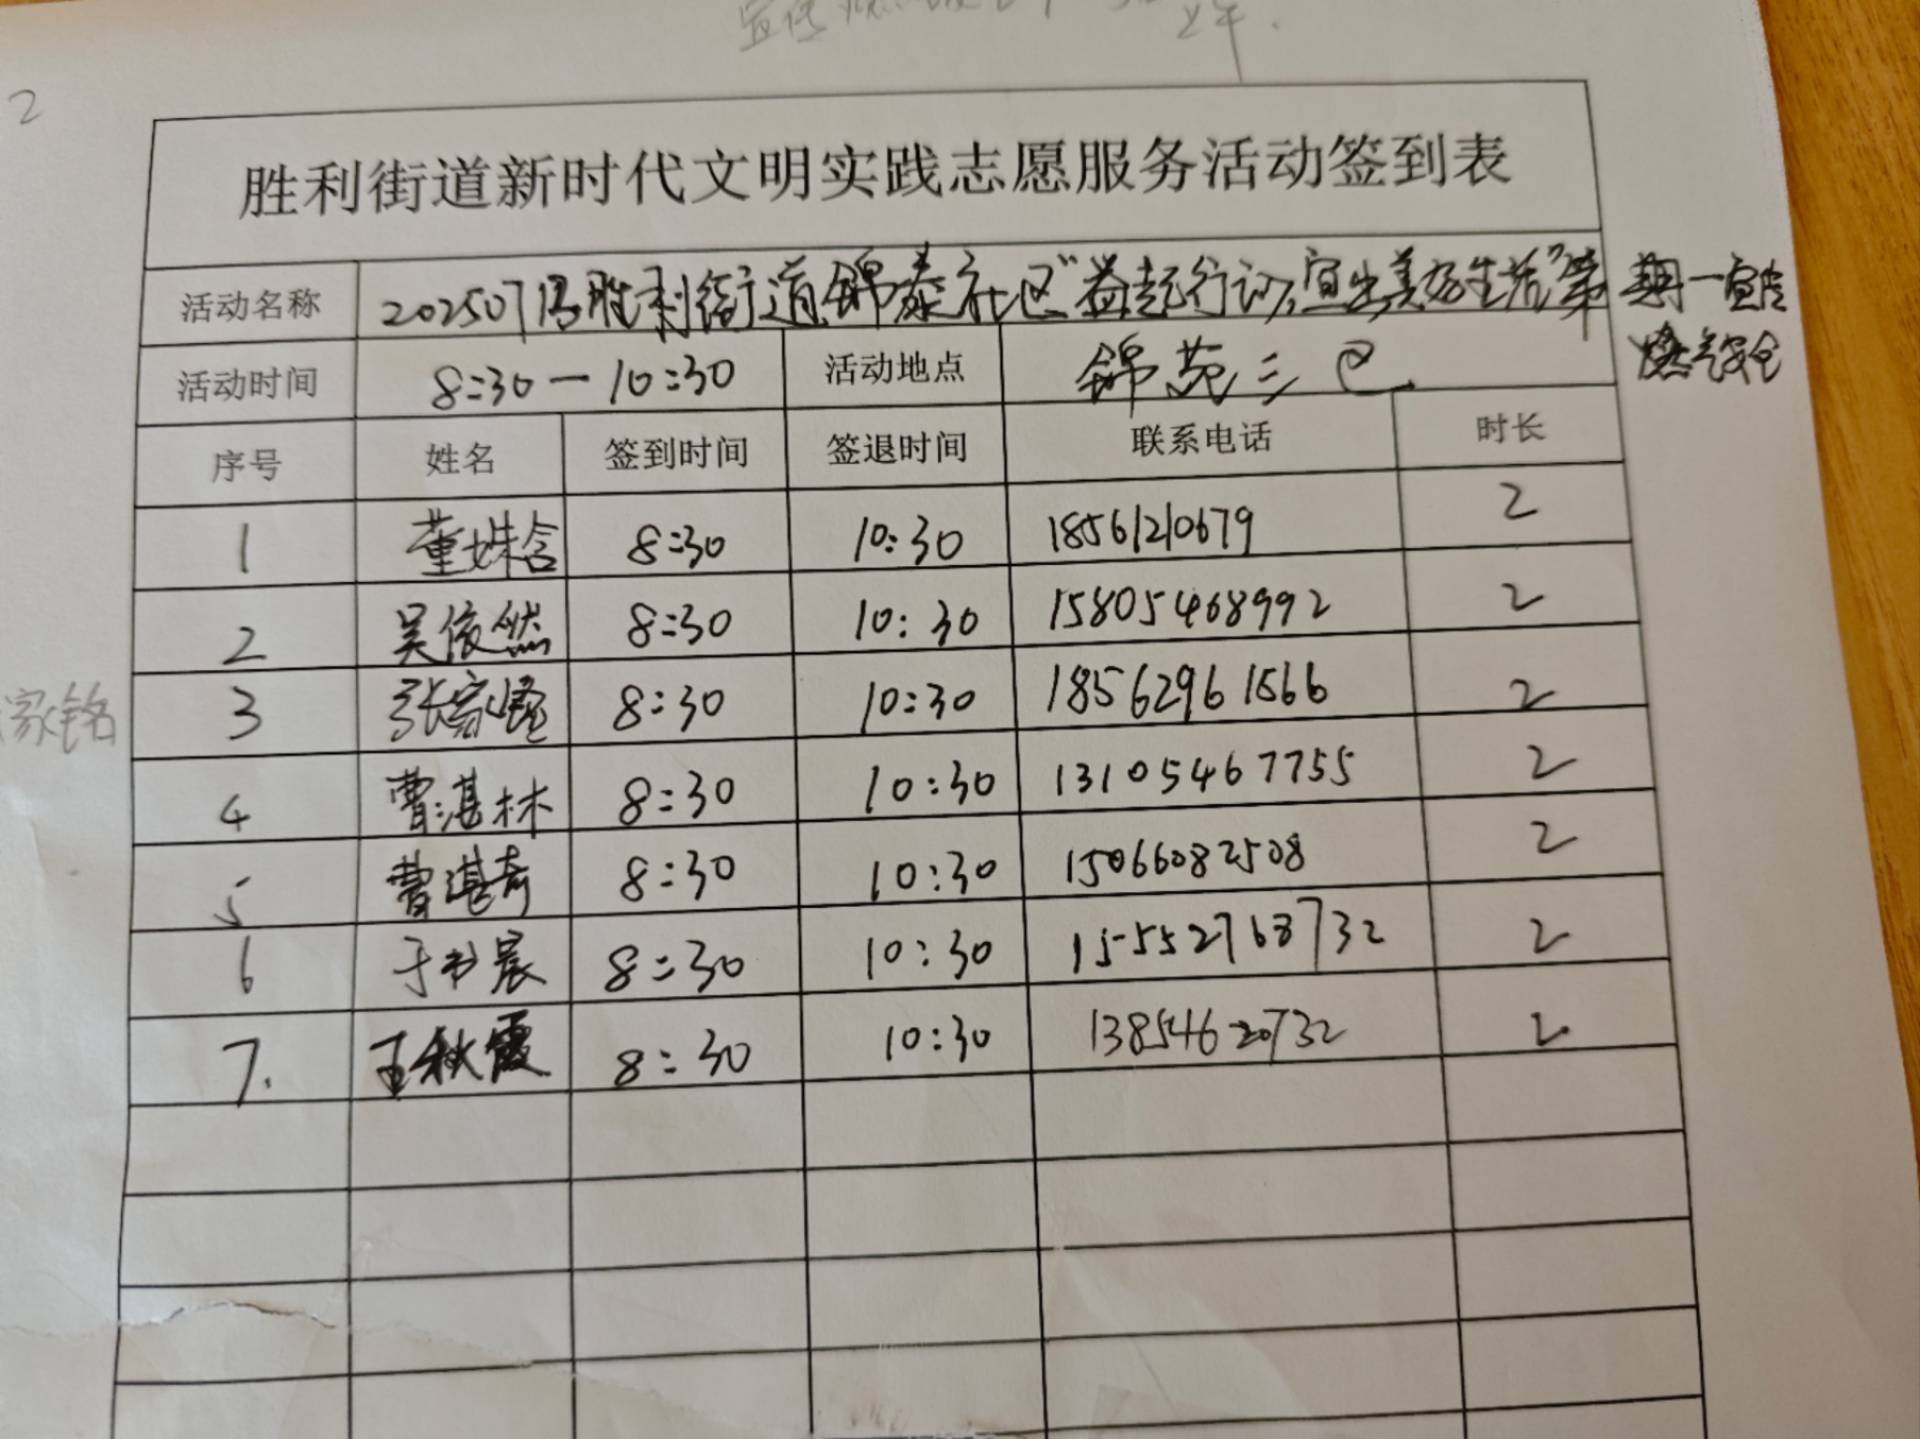 宣传
上午.
2
胜利街道新时代文明实践志愿服务活动签到表
活动名称 202507 胜利街道锦泰社区"益起行动,宜出美好生活"第 期一宣传
燃气安全
活动时间 8:30—10:30 活动地点 锦苑三区
序号 姓名 签到时间 签退时间 联系电话 时长
1 董姝含 8:30 10:30 18561210679 2
2 吴依然 8:30 10:30 15805468992 2
家铭
3 张家 8:30 10:30 18562961566 2
4 曹湛林 8:30 10:30 13105467755 2
5 曹湛奇 8:30 10:30 15066082508 2
6 于书宸 8:30 10:30 15552768732 2
7. 王秋霞 8:30 10:30 13854620732 2